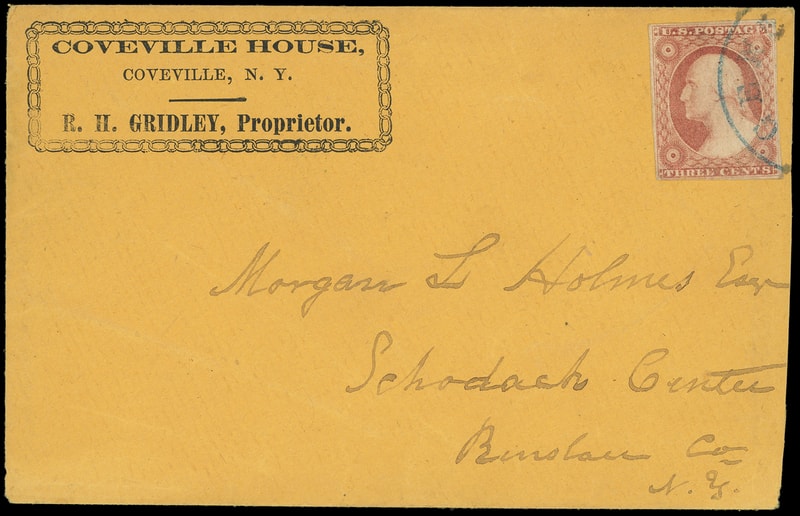 COVEVILLE HOUSE,
COVEVILLE, N. Y.
R. H. GRIDLEY, Proprietor.
U.S. POSTAGE
THREE CENTS
Morgan L Holmes Esqr
Schodack Center
Renslaer Co
N. Y.